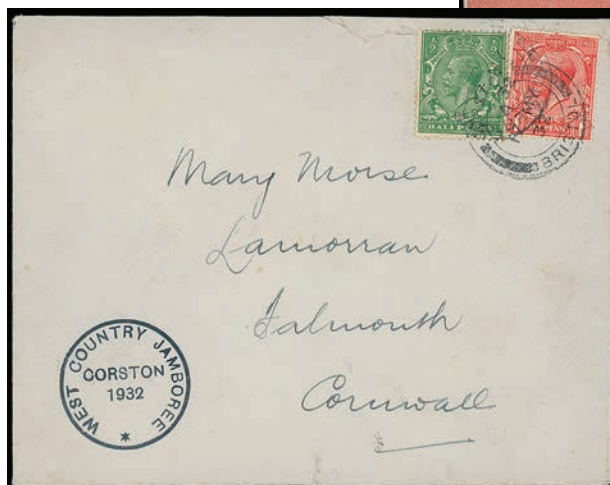 HALFPENNY
BRISTOL
Mary Morse
Lamorran
Falmouth
Cornwall
WEST COUNTRY JAMBOREE
CORSTON
1932